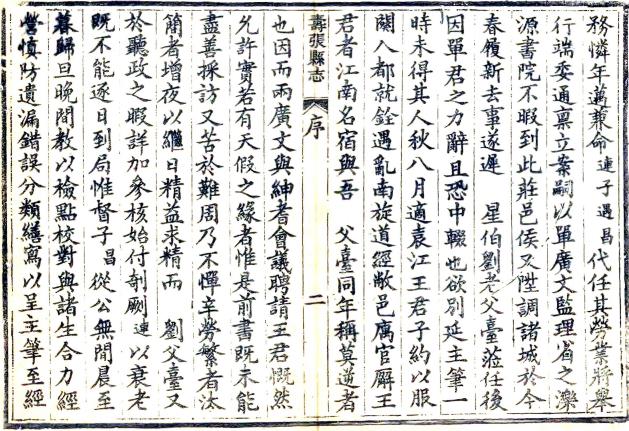 務憐年邁兼命連子遇昌代任其勞業將舉
行端委通稟立案嗣以單廣文監理省之濼
源書院不暇到此莊邑侯又陞調諸城於今
春履新去事遂遲 星伯劉老父臺蒞任後
因單君之力辭且恐中輟也欲別延主筆一
時未得其人秋八月適袁江王君子約以服
闋入都就銓遇亂南旋道經敝邑厲官廨王
君者江南名宿與吾 父臺同年稱莫逆者
壽張縣志
序
二
也因而兩廣文與紳耆會議聘請王君慨然
允許實若有天假之緣者惟是前書既未能
盡善採訪又苦於難周乃不憚辛勞繁者汰
簡者增夜以繼日精益求精而 劉父臺又
於聽政之暇詳加參核始付剞劂連以衰老
既不能逐日到局惟督子昌從公無間晨至
暮歸旦晚間教以檢點校對與諸生合力經
營慎防遺漏錯誤分類繕寫以呈主筆至經